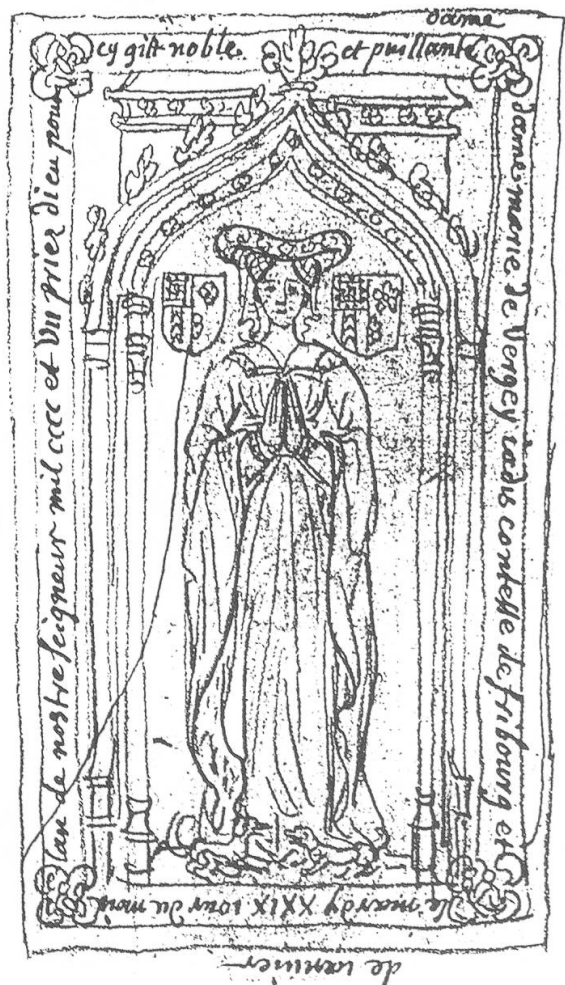 dame
cy gist noble et puissante
dame marie de Vergey iadis contesse de fribourg et
le mardy XXIX iour du mois
de ianvier
lan de nostre seigneur mil cccc et VII priez dieu pour